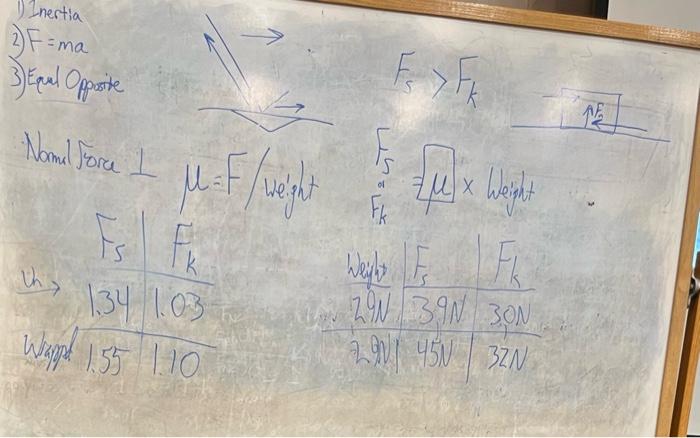 1) Inertia
2) F = ma
3) Equal Opposite
Fs > Fk
Fn
Normal Force ⊥
μ = F / weight
Fs or Fk = μ x Weight
Fs Fk
Un → 1.34 1.03
Wrapped 1.55 1.10
Weight Fs Fk
2.9N 3.9N 3.0N
2.9N 4.5N 3.2N